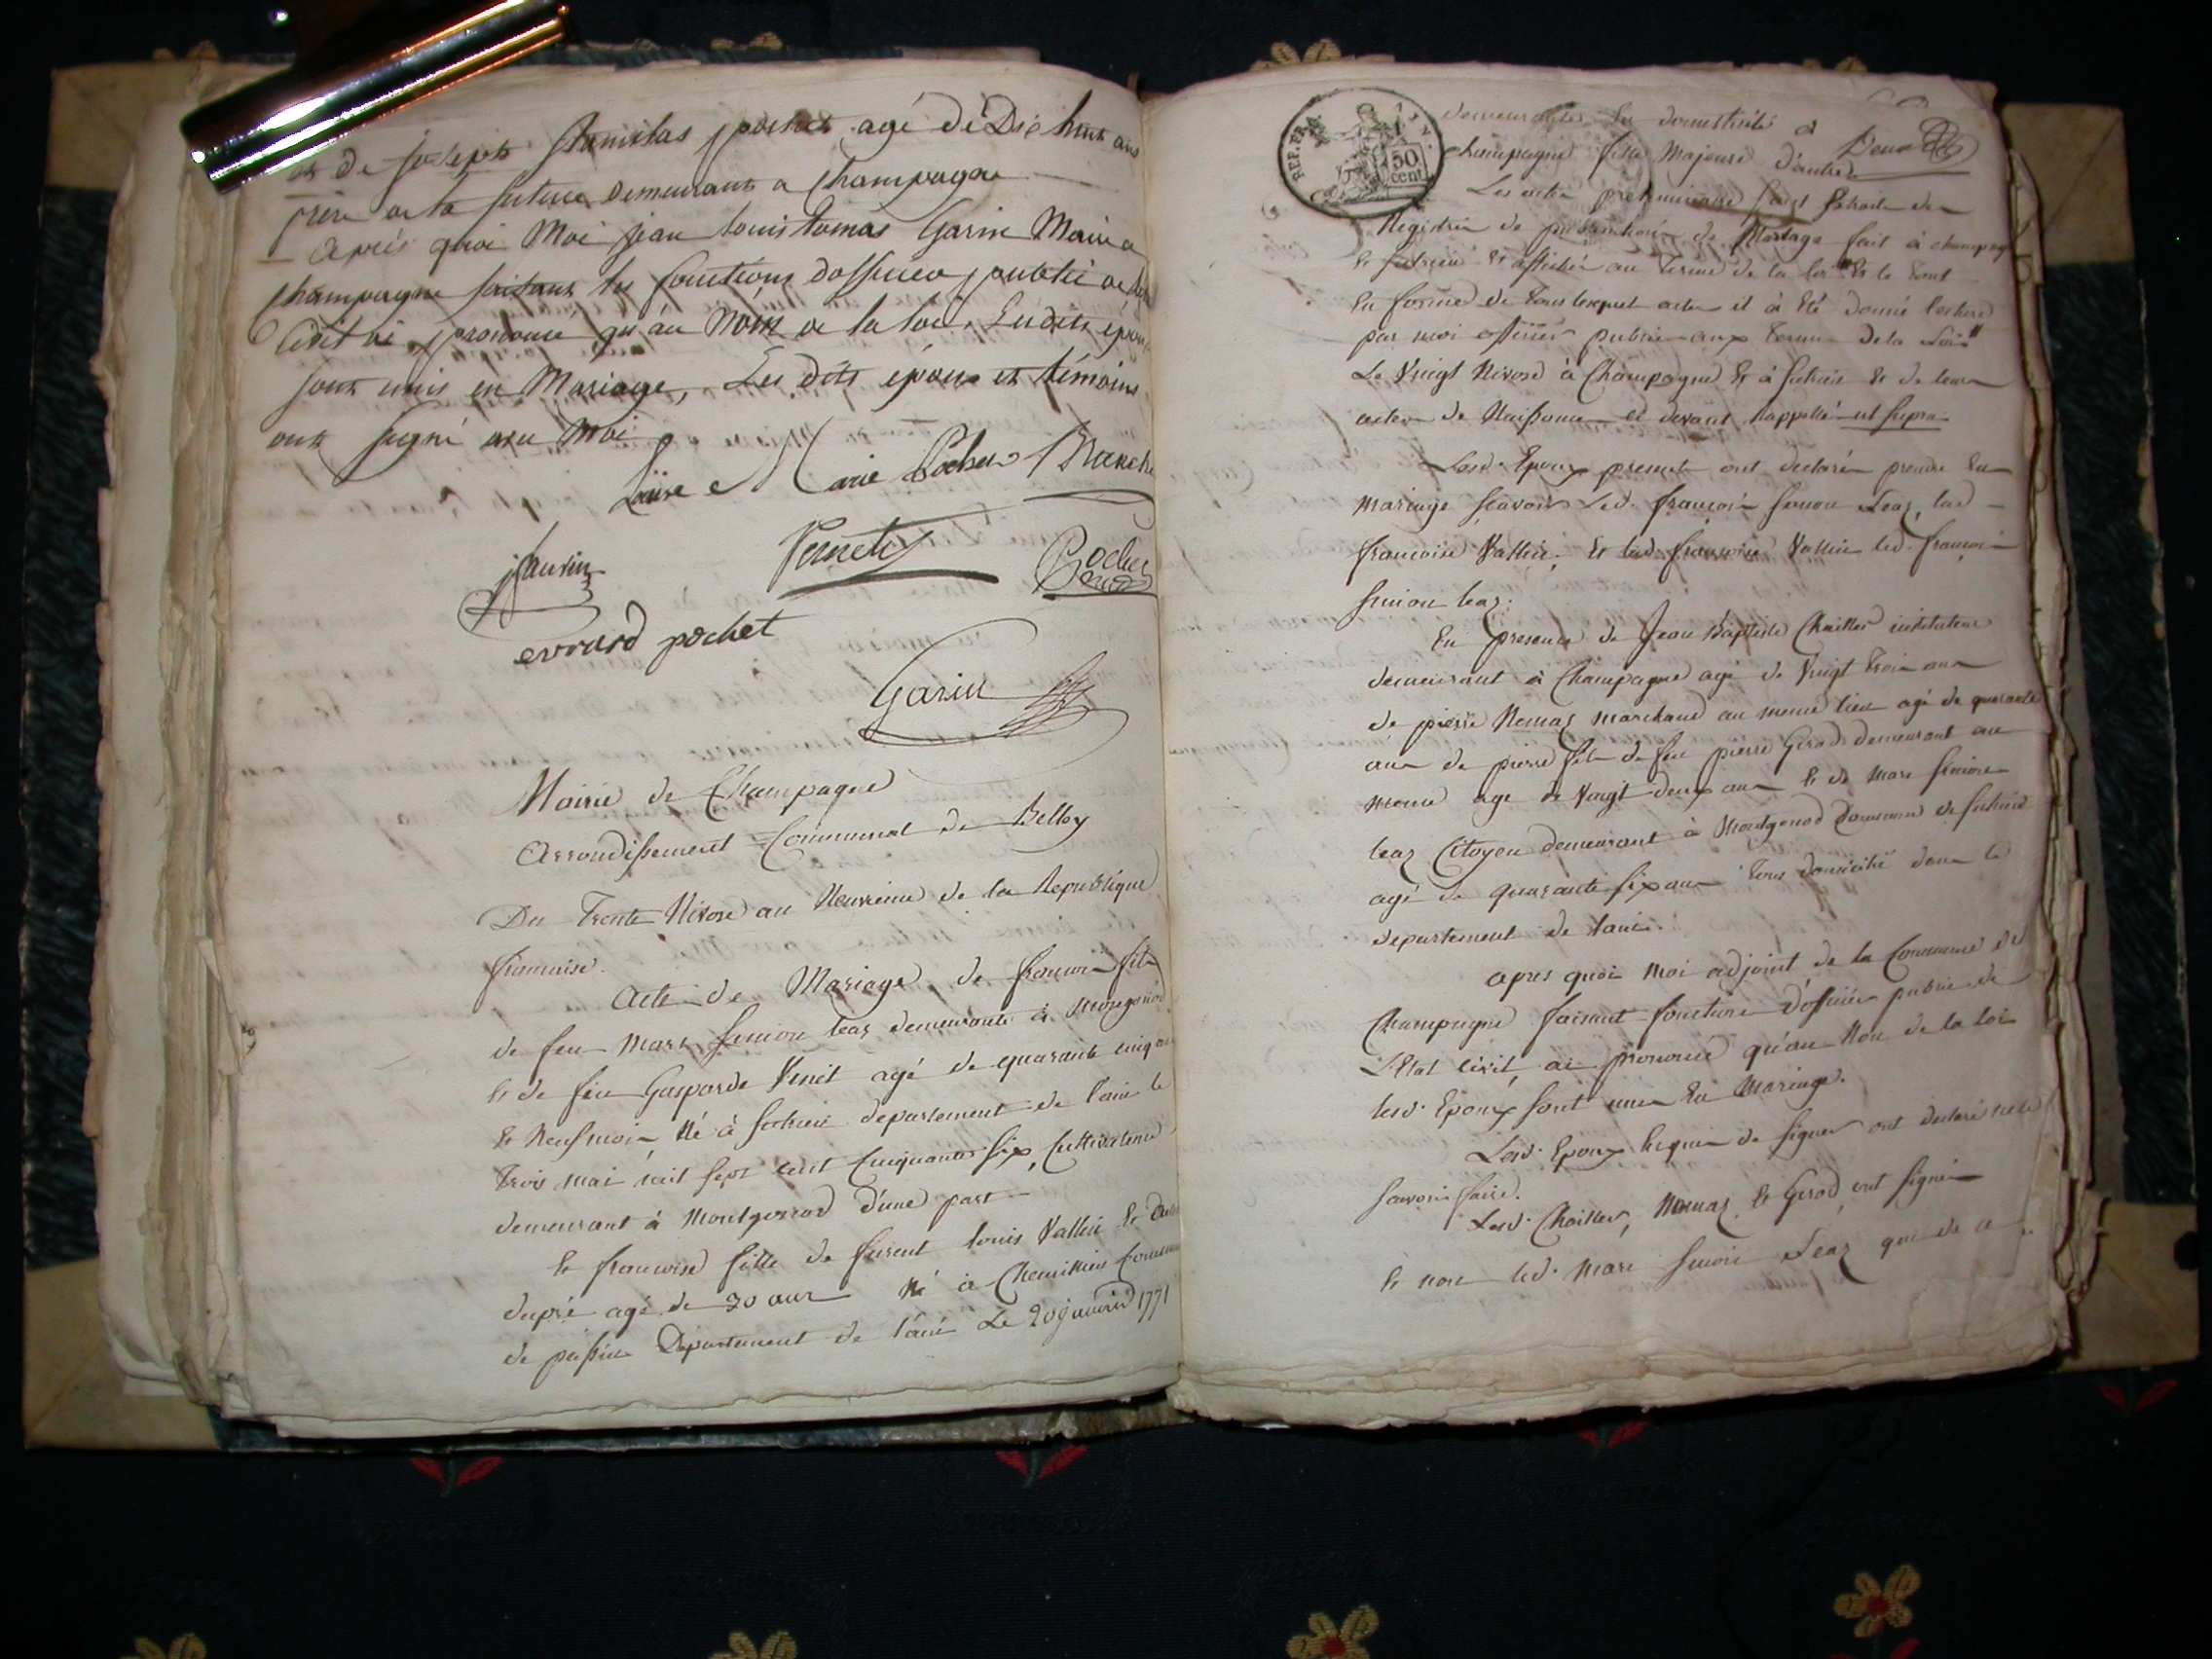 et de joseph Stanislas pochet agé de Dix huit ans
frere de la future Demeurant a Champagne
après quoi Moi jean louis tomas Garin Maire de
Champagne faisant les fonctions dofficier public de
Civil ai prononcé qu'au Nom de la loi, Lesdits époux
sont unis en Mariage, Les dits époux et témoins
ont signé avec Moi
Marie Pochet
Vernet
Pochet
evrard pochet
Garin
Mairie de Champagne
Arrondissement Communal de Belley
Du Trente Nivose an Neuvieme de la Republique
francaise.
Acte de Mariage de francois fils
de feu Marc Simon leaz demeurante à
& de feu Gasparde Vinet agé de quarante cinq ans
& Neuf mois, Né à departement de l'ain le
trois mai mil sept cent cinquante six, Cultivateur
demeurant à Montgonod d'une part
& francoise fille de louis Vallin &
dupré agé de 30 ans né à Chemillieu Commune
de passin Departement de l'ain Le 20 janvier 1771
REP. FRA.
50
cent
demeurante en domesticité à
Champagne fille Majeure D'autre
Les actes preliminaires sont Extraits des
Registres de publication de Mariage fait à champagne
& affichés au terme de la loi & le tout
En forme de tous lesquel actes il à Eté donné lecture
par moi officier public aux termes de la Loi"
Le Vingt Nivose à Champagne & à & de leurs
actes de Naissance ci devant rappellé ut supra
Lesd. Epoux presents ont declarés prendre En
mariage sçavoir Led. françois simon Leaz, lad
francoise Vallin; Et lad. francoise Vallin led. francois
simon leaz.
En presence de Jean Baptiste Chaillet instituteur
demeurant à Champagne agé de Vingt trois ans
de pierre marchand au meme lieu agé de quarante
ans de pierre fils de feu pierre Girod demeurant au
meme agé de Vingt deux ans & de Marc simon
leaz Citoyen demeurant à Montgonod Commune de
agé de quarante six ans tous domicilié dans le
departement de l'ain.
apres quoi moi adjoint de la Commune de
Champagne faisant fonctions d'officier public de
L'Etat civil, ai prononcé qu'au Nom de la loi
lesd. Epoux sont unis En Mariage.
Lesd. Epoux Requis de signer ont declaré ne le
savoir faire.
Lesd. Chaillet, & Girod, ont signés
& non led. Marc simon Leaz qui de ce